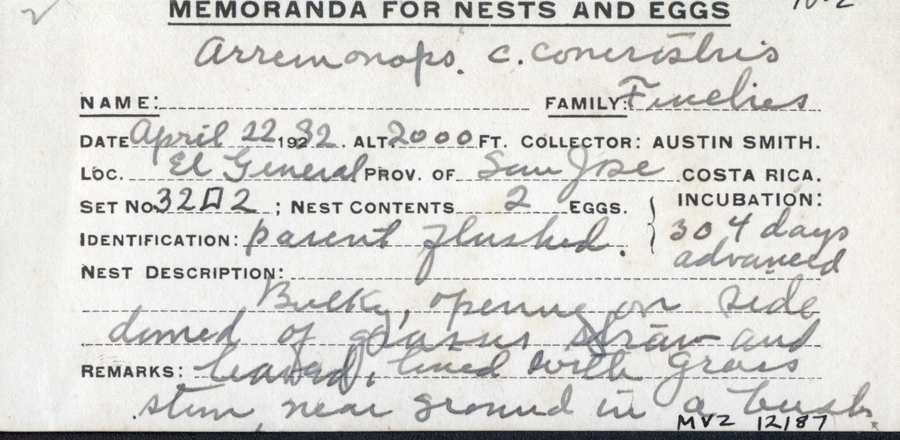 MEMORANDA FOR NESTS AND EGGS
Arremonops. c. conirostris
NAME: FAMILY:
DATE April 22 1932. ALT. 2000 FT. COLLECTOR: AUSTIN SMITH.
LOC. El General PROV. OF San Jose COSTA RICA.
SET No. 32 2 ; NEST CONTENTS 2 EGGS. INCUBATION:
IDENTIFICATION: parent flushed. 3 or 4 days
advanced
NEST DESCRIPTION:
Bulky, opening on side
domed of grasses straw and
REMARKS: leaves, lined with grass
stem, near ground in a bush
MVZ 12/87